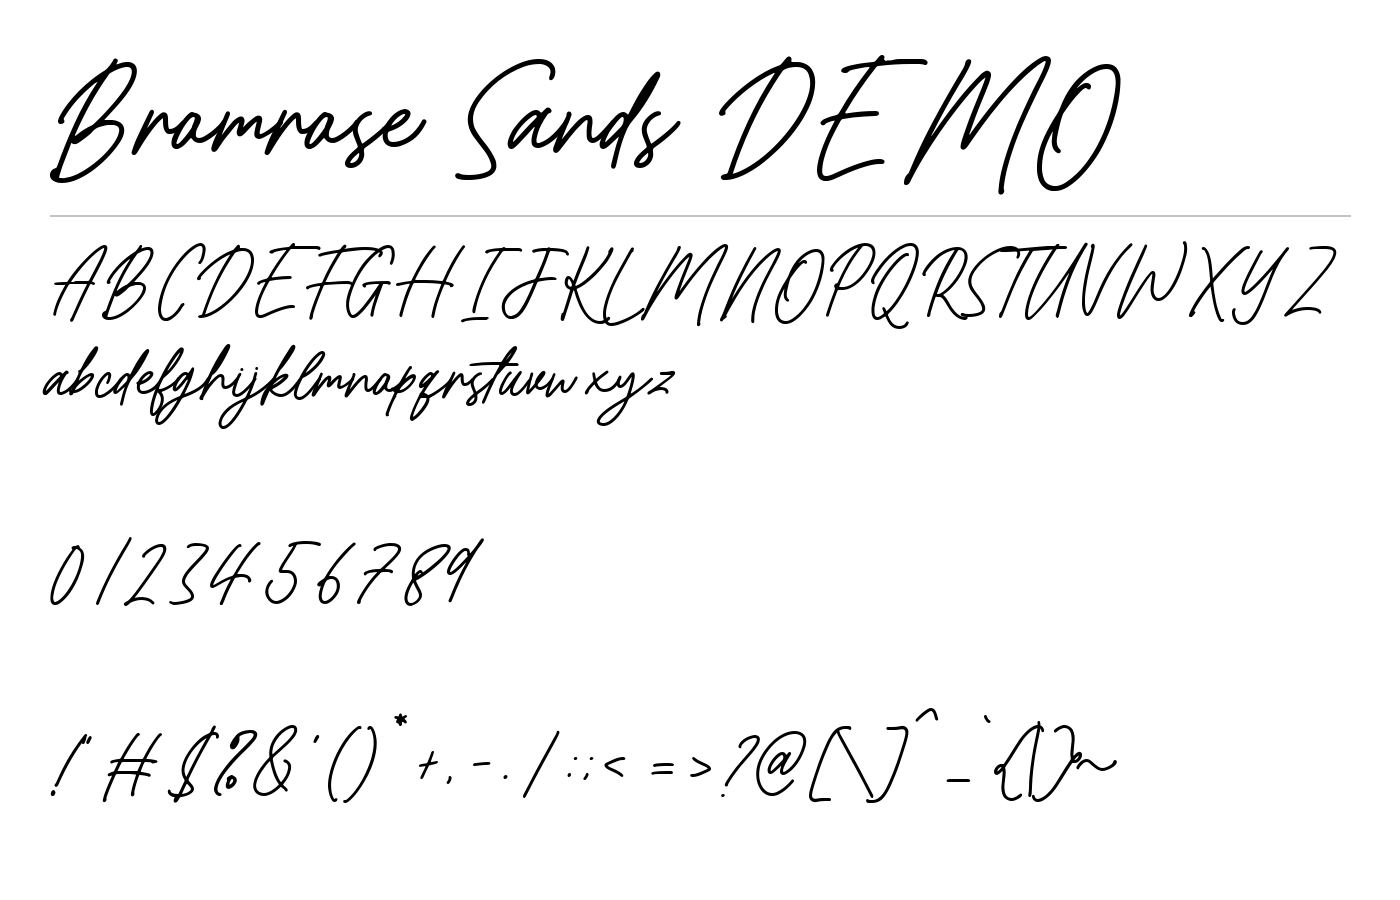 Bromrose Sands DEMO
ABCDEFGHIJKLMNOPQRSTUVWXYZ
abcdefghijklmnopqrstuvwxyz
0123456789
!"#$%&'()*+,-./:;<=>?@[\]^_`{|}~